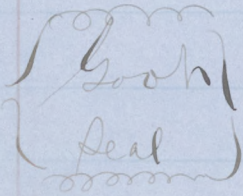 Gooh
Seal